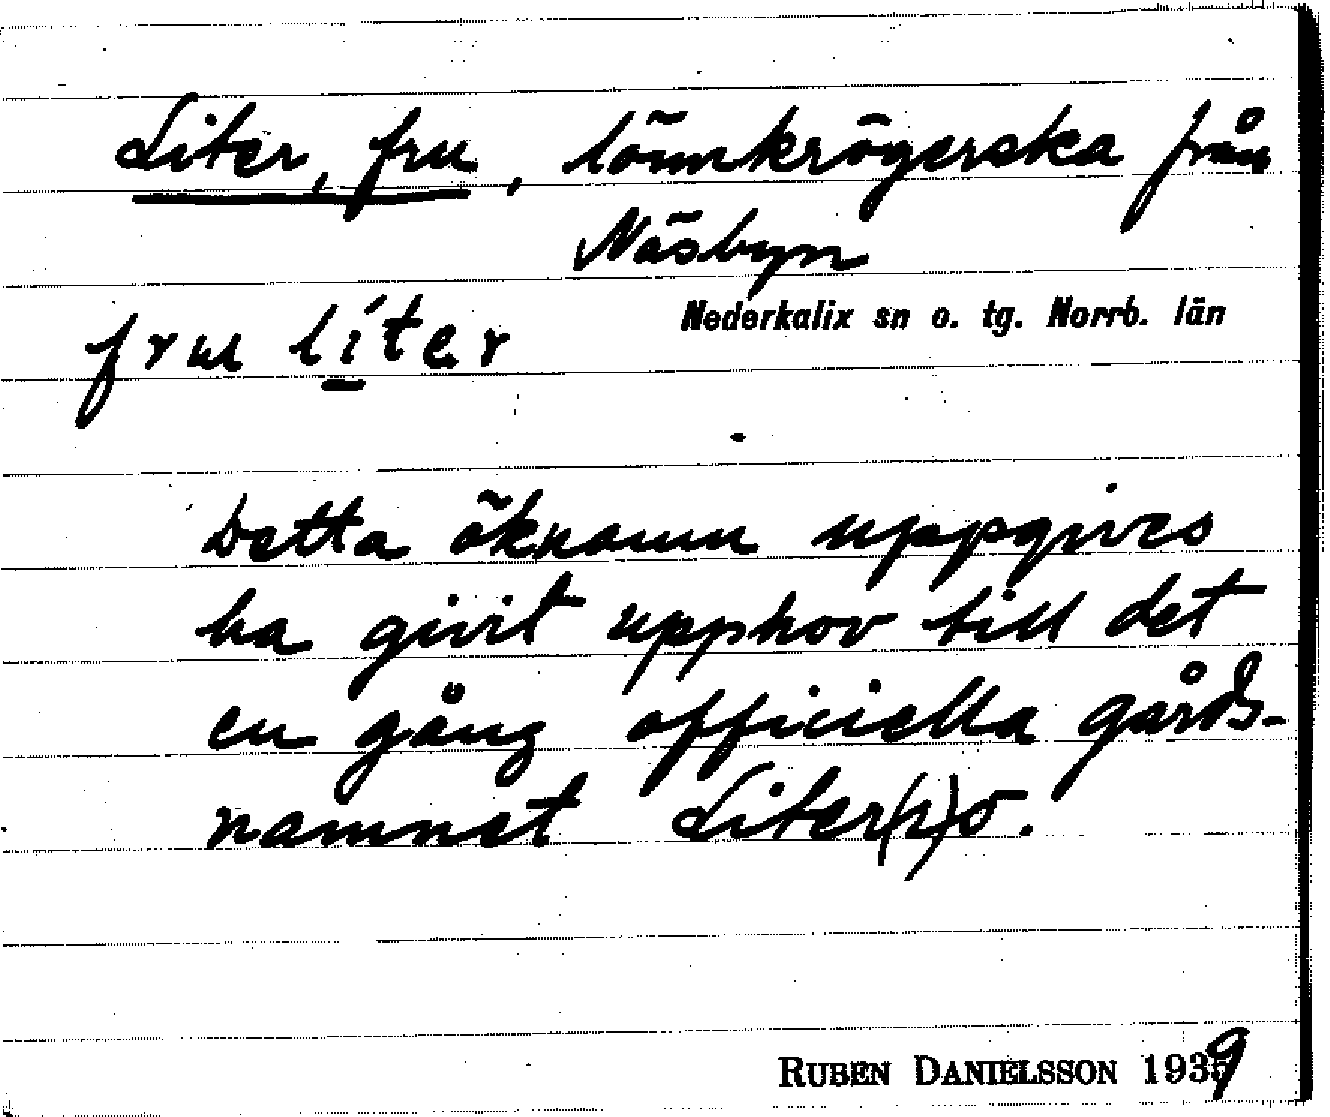 Liter, fru, lönnkrögerska från
Näsbyn
Nederkalix sn o. tg. Norrb. län
fru líter
Detta öknamn uppgives
ha givit upphov till det
en gång officiella gårds-
namnet Liter(n)o.
RUBEN DANIELSSON 1939